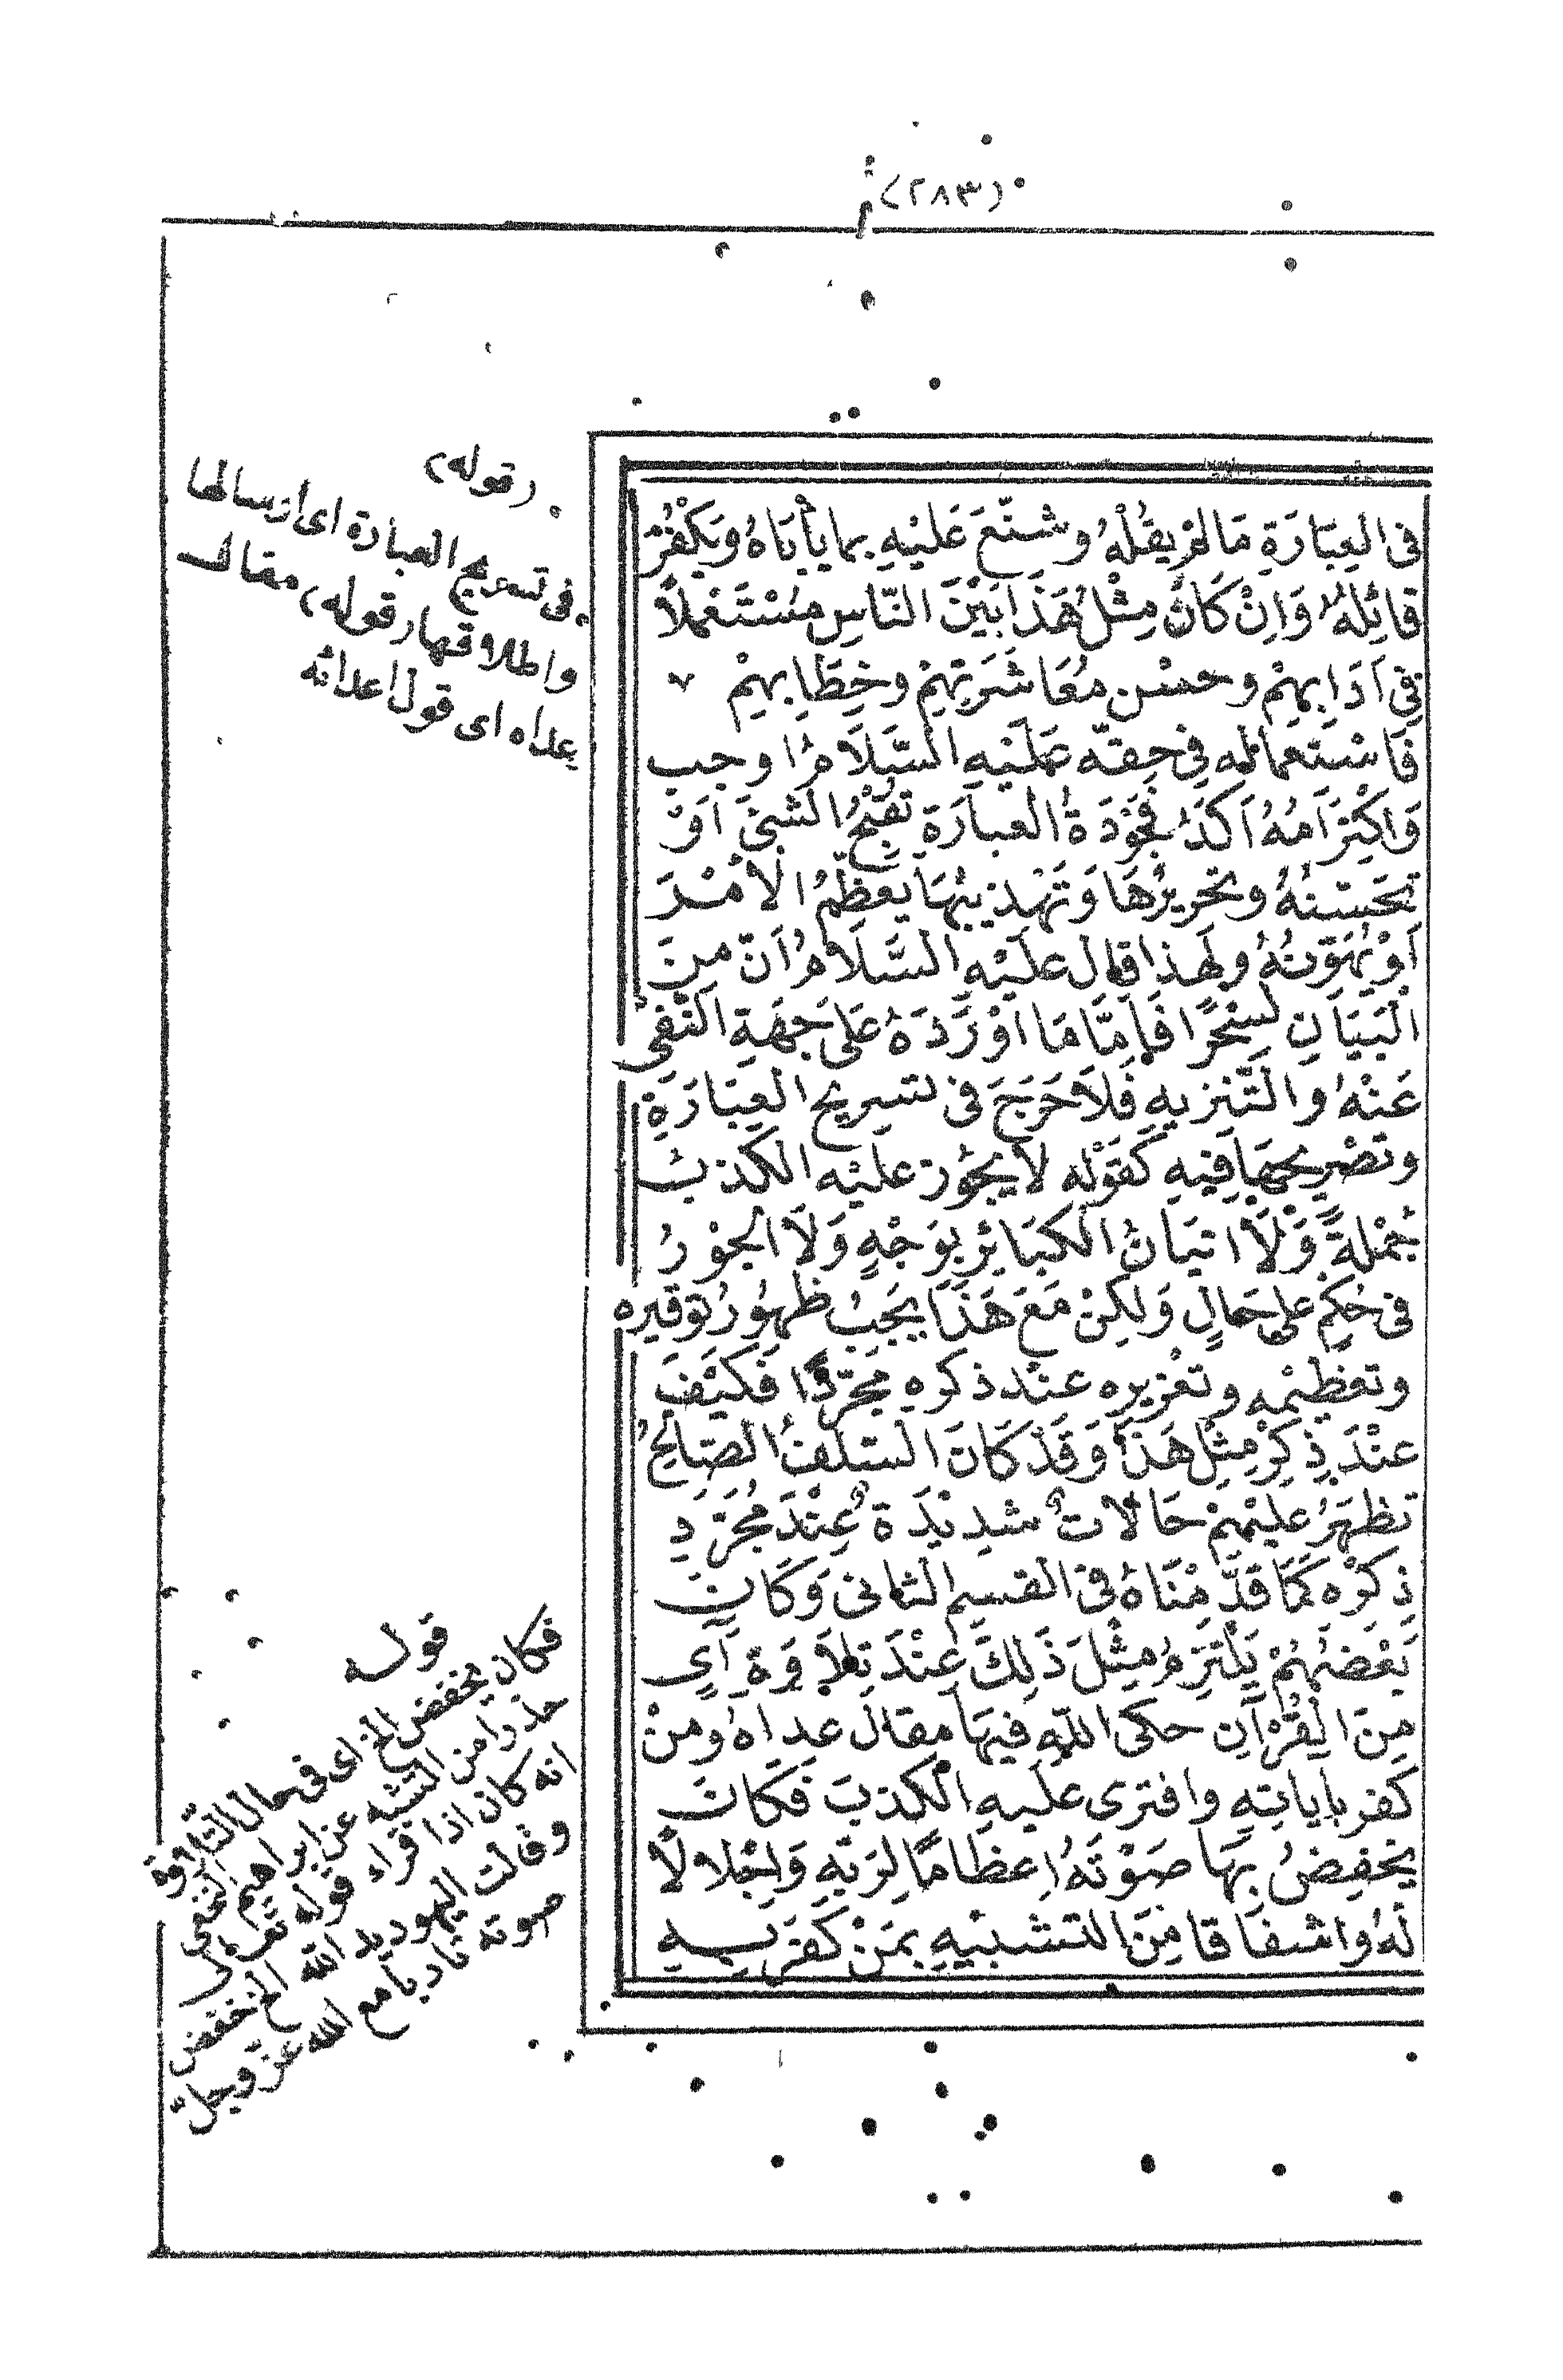 (٢٨٣)
فى العِبَارَةِ مَا لَمْ يَقُلْهُ وشَنَّعَ عَلَيْهِ بما يأبَاهُ وَيَكْفُرُ
قائِلُهُ وَاِنْ كَانَ مِثْلُ هَذَا بَيْنَ النّاسِ مُسْتَعْمَلًا
فِى اَدَابِهِمْ وحسْنِ مُعَاشَرَتِهِمْ وخِطَابِهِمْ
فَاسْتعمالهِ فِى حقّه عَلَيْهِ السَّلَامُ اوجب
وَاكْتِرَامُهُ اَكَدُ فَجَوْدَةُ العبارَةِ تقَبِّحُ الشىَْ اَوْ
تحَسّنُهُ وتحريرُهَا وَتَهْذيبُهَا يعَظِّمُ الْاَمْرَ
اَوْ يُهَوِّنُهُ ولهذا قال علَيْهِ السَّلَامُ اَنّ مِنَ
الْبَيَانِ لسِحْرًا فَاَمَّا مَا اَوْرَدَهُ عَلَى جِهَةِ النَّفىِ
عَنْهُ والتَّنزيهِ فَلَا حَرَجَ فى تسريح العِبَارَةِ
وتصْريحِهَا فِيهِ كقَوْلِهِ لا يجُوز عليْه الكذبُ
جُمْلةً وَلَا اتيَانُ الكبَائِرِ بوَجْهٍ وَلَا الجوْرُ
فى حُكمٍ على حَالٍ وَلكِنْ مَعَ هَذَا يَجِبُ ظهُورُ توقيره
وتعظيْمه وتعْزيره عنْد ذكره مجَرّدًا فَكَيْفَ
عنْدَ ذِكرِ مِثْلِ هَذَا وَقَدْ كَانَ السّلَفُ الصّالحُ
تظهَرُ عليْهِمْ حَالاتٌ شدِيْدَةٌ عِنْدَ مُجَرَّدِ
ذِكرْه كَمَا قدَّمْنَاهُ فى القسم الثانى وَكَانَ
بَعْضُهُمْ يَلْتَزِمُ مِثْلَ ذَلِكَ عِنْدَ تِلَاوَةِ آىٍ
مِنَ الْقُرْآنِ حكى اللّهِ فيهَا مقالَ عِداهُ ومنْ
كفر باٰياتِهِ وافترى علَيهِ الْكَذبَ فَكَانَ
يخفِضُ بِهَا صَوْتَهُ اِعظامًا لِرَبّهِ وَاِجْلالًا
لهُ واشفاقا مِنَ التشبّهِ بمَنْ كَفَرَ بِهِ
(قوله)
فى تسريح العبارة اى ارسالها
واطلاقها (قوله) مقال
عداه اى قول اعدائه
قوله
فكان يخفض الخ اى فى حال التلاوة
حذرا من التشبه عن ابراهيم النخعى
انه كان اذا قراء قوله تعالى
وقالت اليهود يد الله الخ خفض
صوته تادبا مع الله عزّ وجلّ